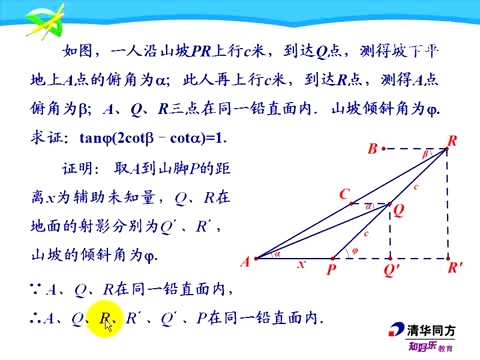 如图，一人沿山坡PR上行c米，到达Q点，测得坡下平
地上A点的俯角为α；此人再上行c米，到达R点，测得A点
俯角为β；A、Q、R三点在同一铅直面内．山坡倾斜角为φ.
求证：tanφ(2cotβ－cotα)=1.
证明： 取A到山脚P的距
离x为辅助未知量，Q、R在
地面的射影分别为Q′、R′，
山坡的倾斜角为φ.
∵ A、Q、R在同一铅直面内，
∴A、Q、R、R′、Q′、P在同一铅直面内．
B
R
β
c
C
α
Q
c
A
α
x
P
φ
Q'
R'
清华同方
知好乐教育